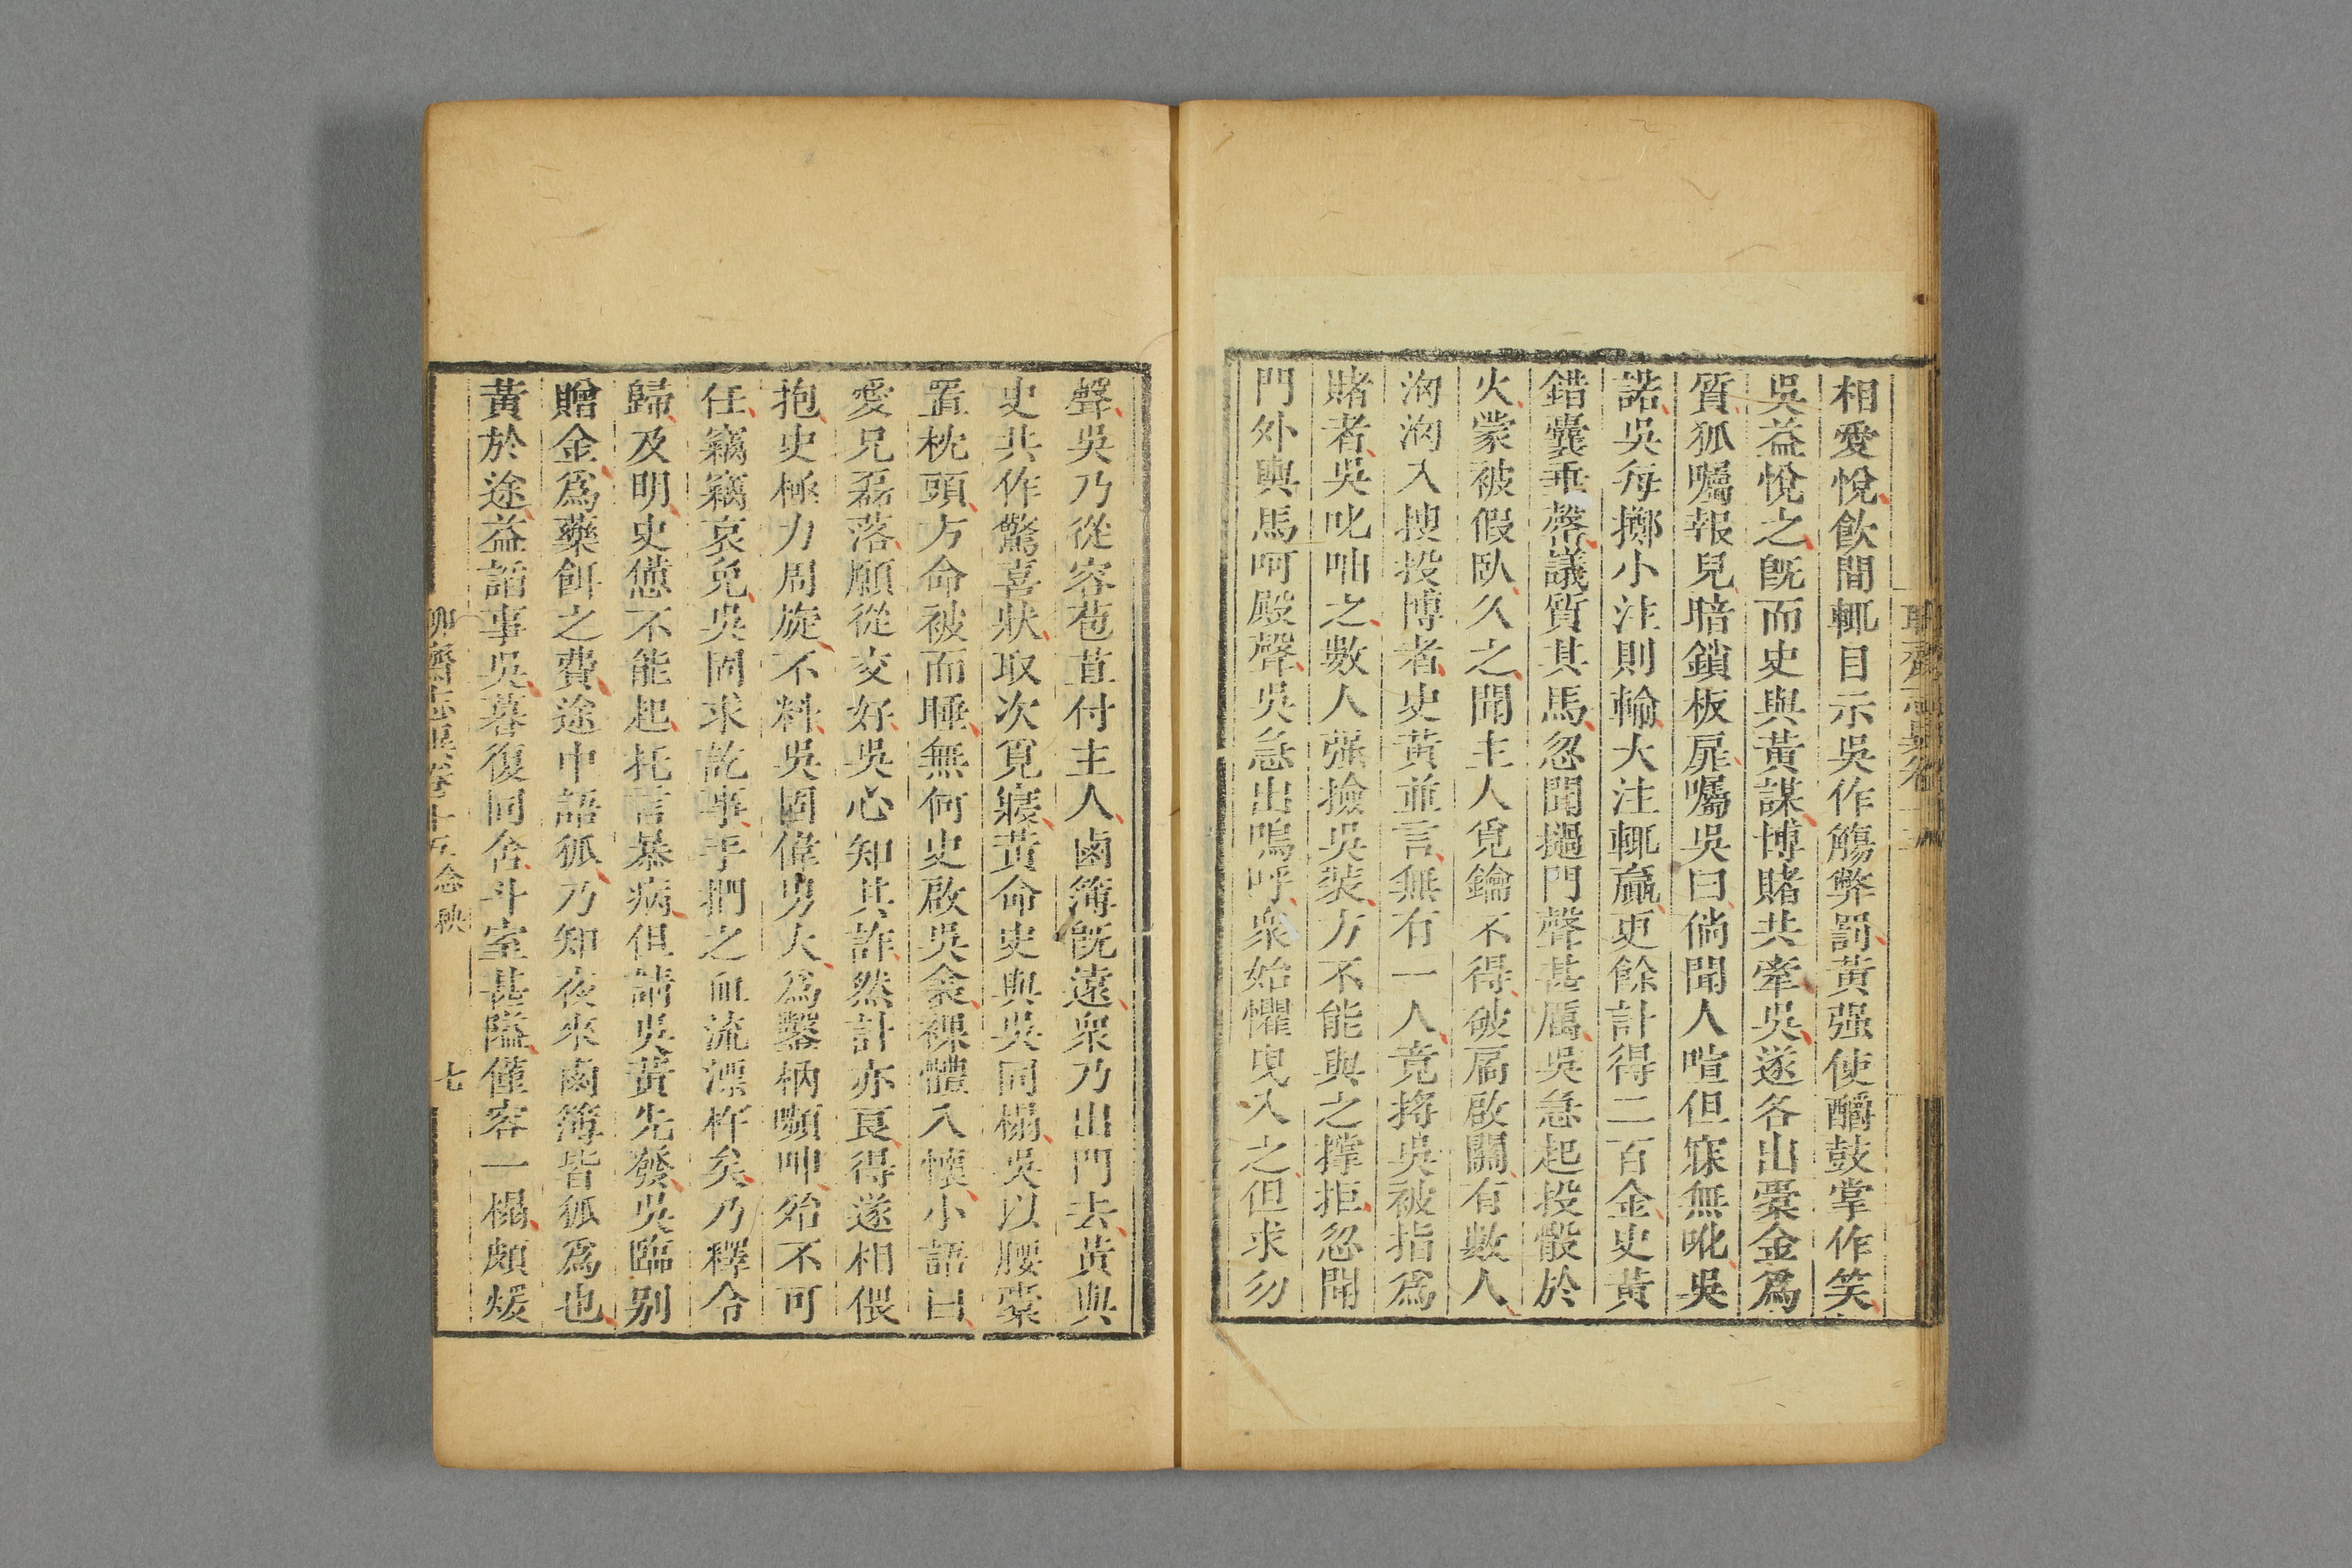 相愛悅飲間輒目示吳作觴弊罰黃强使釂鼓掌作笑
吳益悅之旣而史與黃謀博賭共牽吳遂各出橐金爲
質狐囑報兒暗鎖板扉囑吳曰倘聞人喧但寐無吪吳
諾吳每擲小注則輸大注輒贏更餘計得二百金史黃
錯囊垂罄議質其馬忽聞撾門聲甚厲吳急起投骰於
火蒙被假臥久之聞主人覓鑰不得破扃啟關有數人
洶洶入搜投博者史黃並言無有一人竟捋吳被指爲
賭者吳叱咄之數人强撿吳裝方不能與之撐拒忽聞
門外輿馬呵殿聲吳急出嗚呼衆始懼曳入之但求勿
聲吳乃從容苞苴付主人鹵簿旣遠衆乃出門去黃與
史共作驚喜狀取次覓寢黃命史與吳同榻吳以腰橐
置枕頭方命被而睡無何史啟吳衾裸體入懷小語曰
愛兄磊落願從交好吳心知其詐然計亦良得遂相偎
抱史極力周旋不料吳固偉男大爲鑿枘嚬呻殆不可
任竊竊哀免吳固求訖事手捫之血流漂杵矣乃釋令
歸及明史憊不能起托言暴病但請吳黃先發吳臨别
贈金爲藥餌之費途中語狐乃知夜來鹵簿皆狐爲也
黃於途益諂事吳暮復同舍斗室甚隘僅容一榻頗煖
聊齋志異卷十五念秧 七